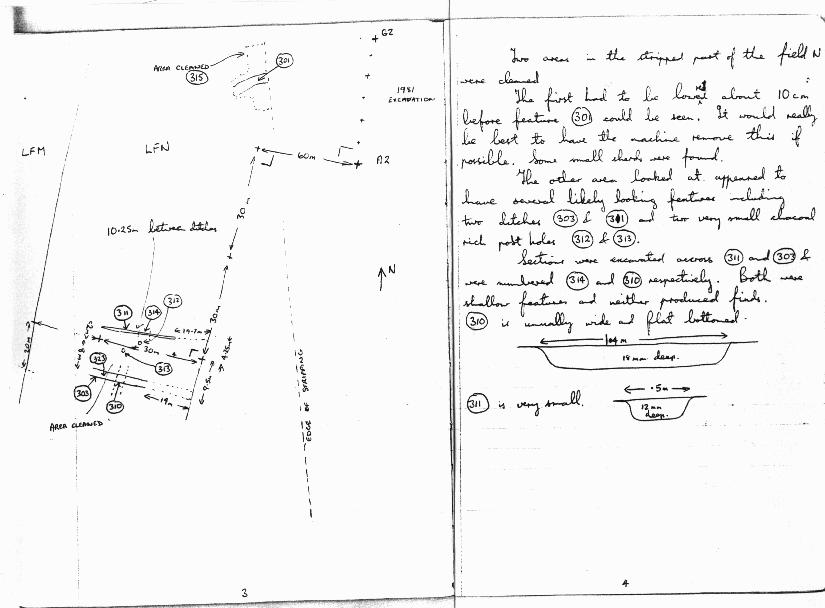 G2
AREA CLEANED
315
301
1981
EXCAVATION
LFM
LFN
60m
A2
30m
10.25m between ditches
N
312
311
314
19.7m
30m
30m
20m
4.25m
313
323
303
310
9.5m
19m
AREA CLEANED
EDGE OF STRIPPING
3
Two areas in the stripped part of the field N
were cleaned
The first had to be lowered about 10cm
before feature 301 could be seen. It would really
be best to have the machine remove this if
possible. Some small sherds were found.
The other area looked at appeared to
have several likely looking features including
two ditches 303 & 311 and two very small charcoal
rich post holes 312 & 313.
Sections were excavated accross 311 and 303 &
were numbered 314 and 310 respectively. Both were
shallow features and neither produced finds.
310 is unusually wide and flat bottomed.
1.04m
18mm deep.
311 is very small.
.5m
12mm
deep.
4